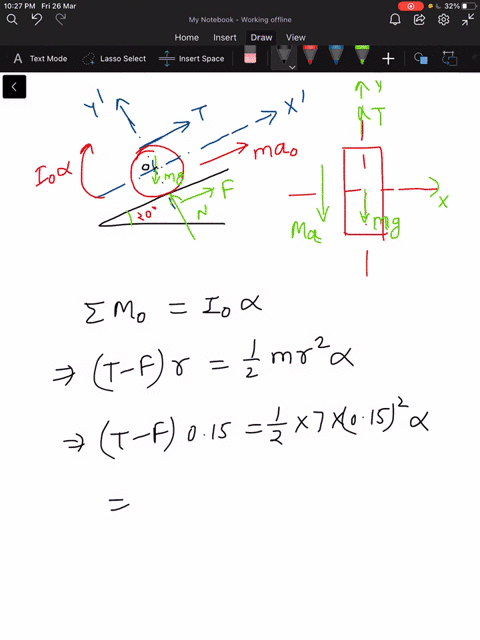 10:27 PM Fri 26 Mar
32%
My Notebook - Working offline
Home Insert Draw View
Text Mode Lasso Select Insert Space
Y' T X'
I₀α O mg ma₀
F
20° N
Y
T
X
Ma mg
Σ M₀ = I₀ α
⇒ (T-F) r = 1/2 mr² α
⇒ (T-F) 0.15 = 1/2 × 7 × (0.15)² α
=